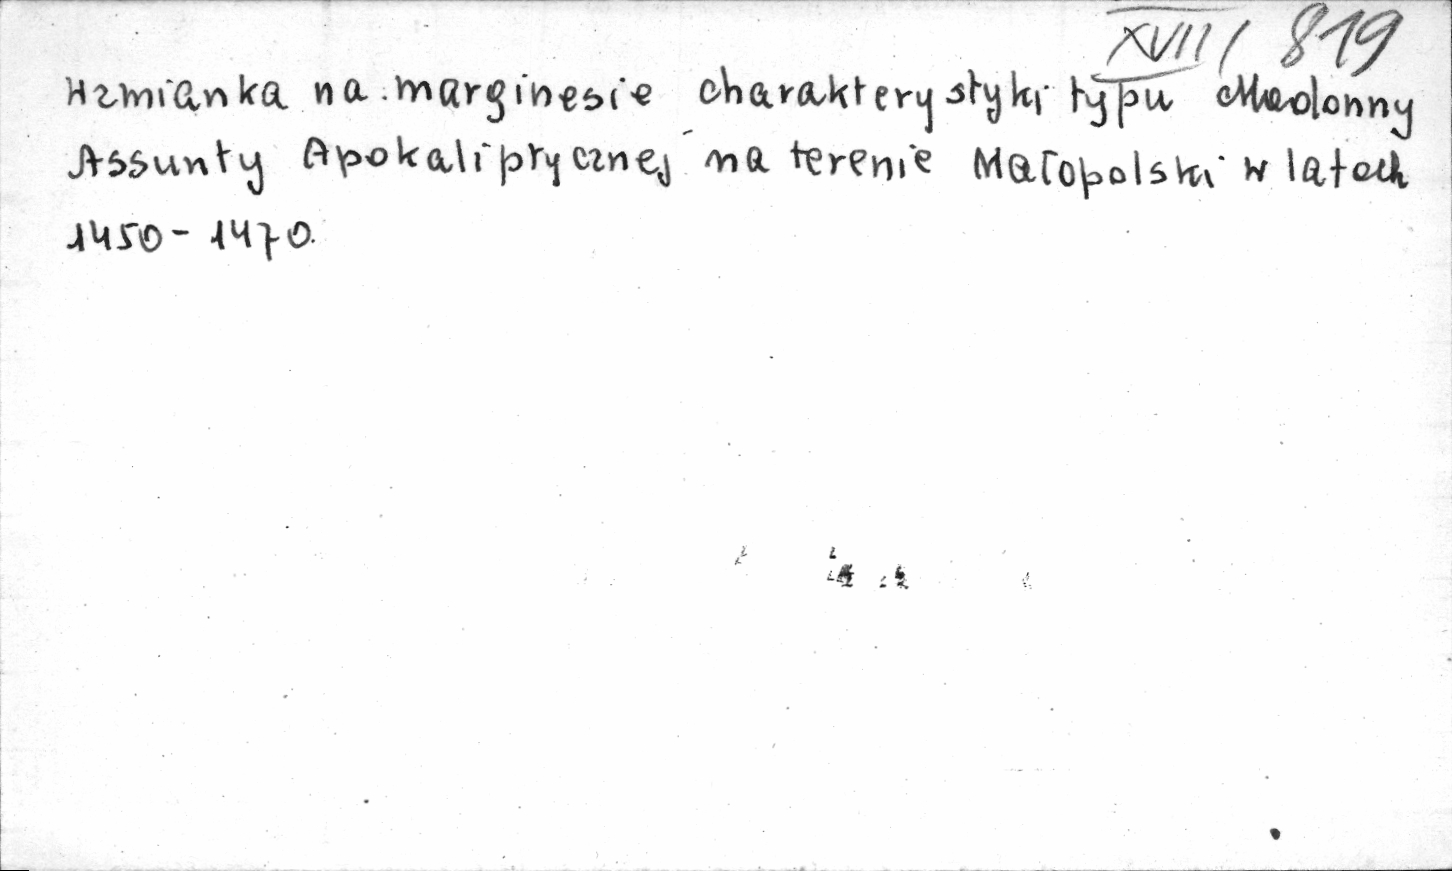 XVII / 819
Wzmianka na marginesie charakterystyki typu Madonny
Assunty Apokaliptycznej na terenie Małopolski w latach
1450 - 1470.